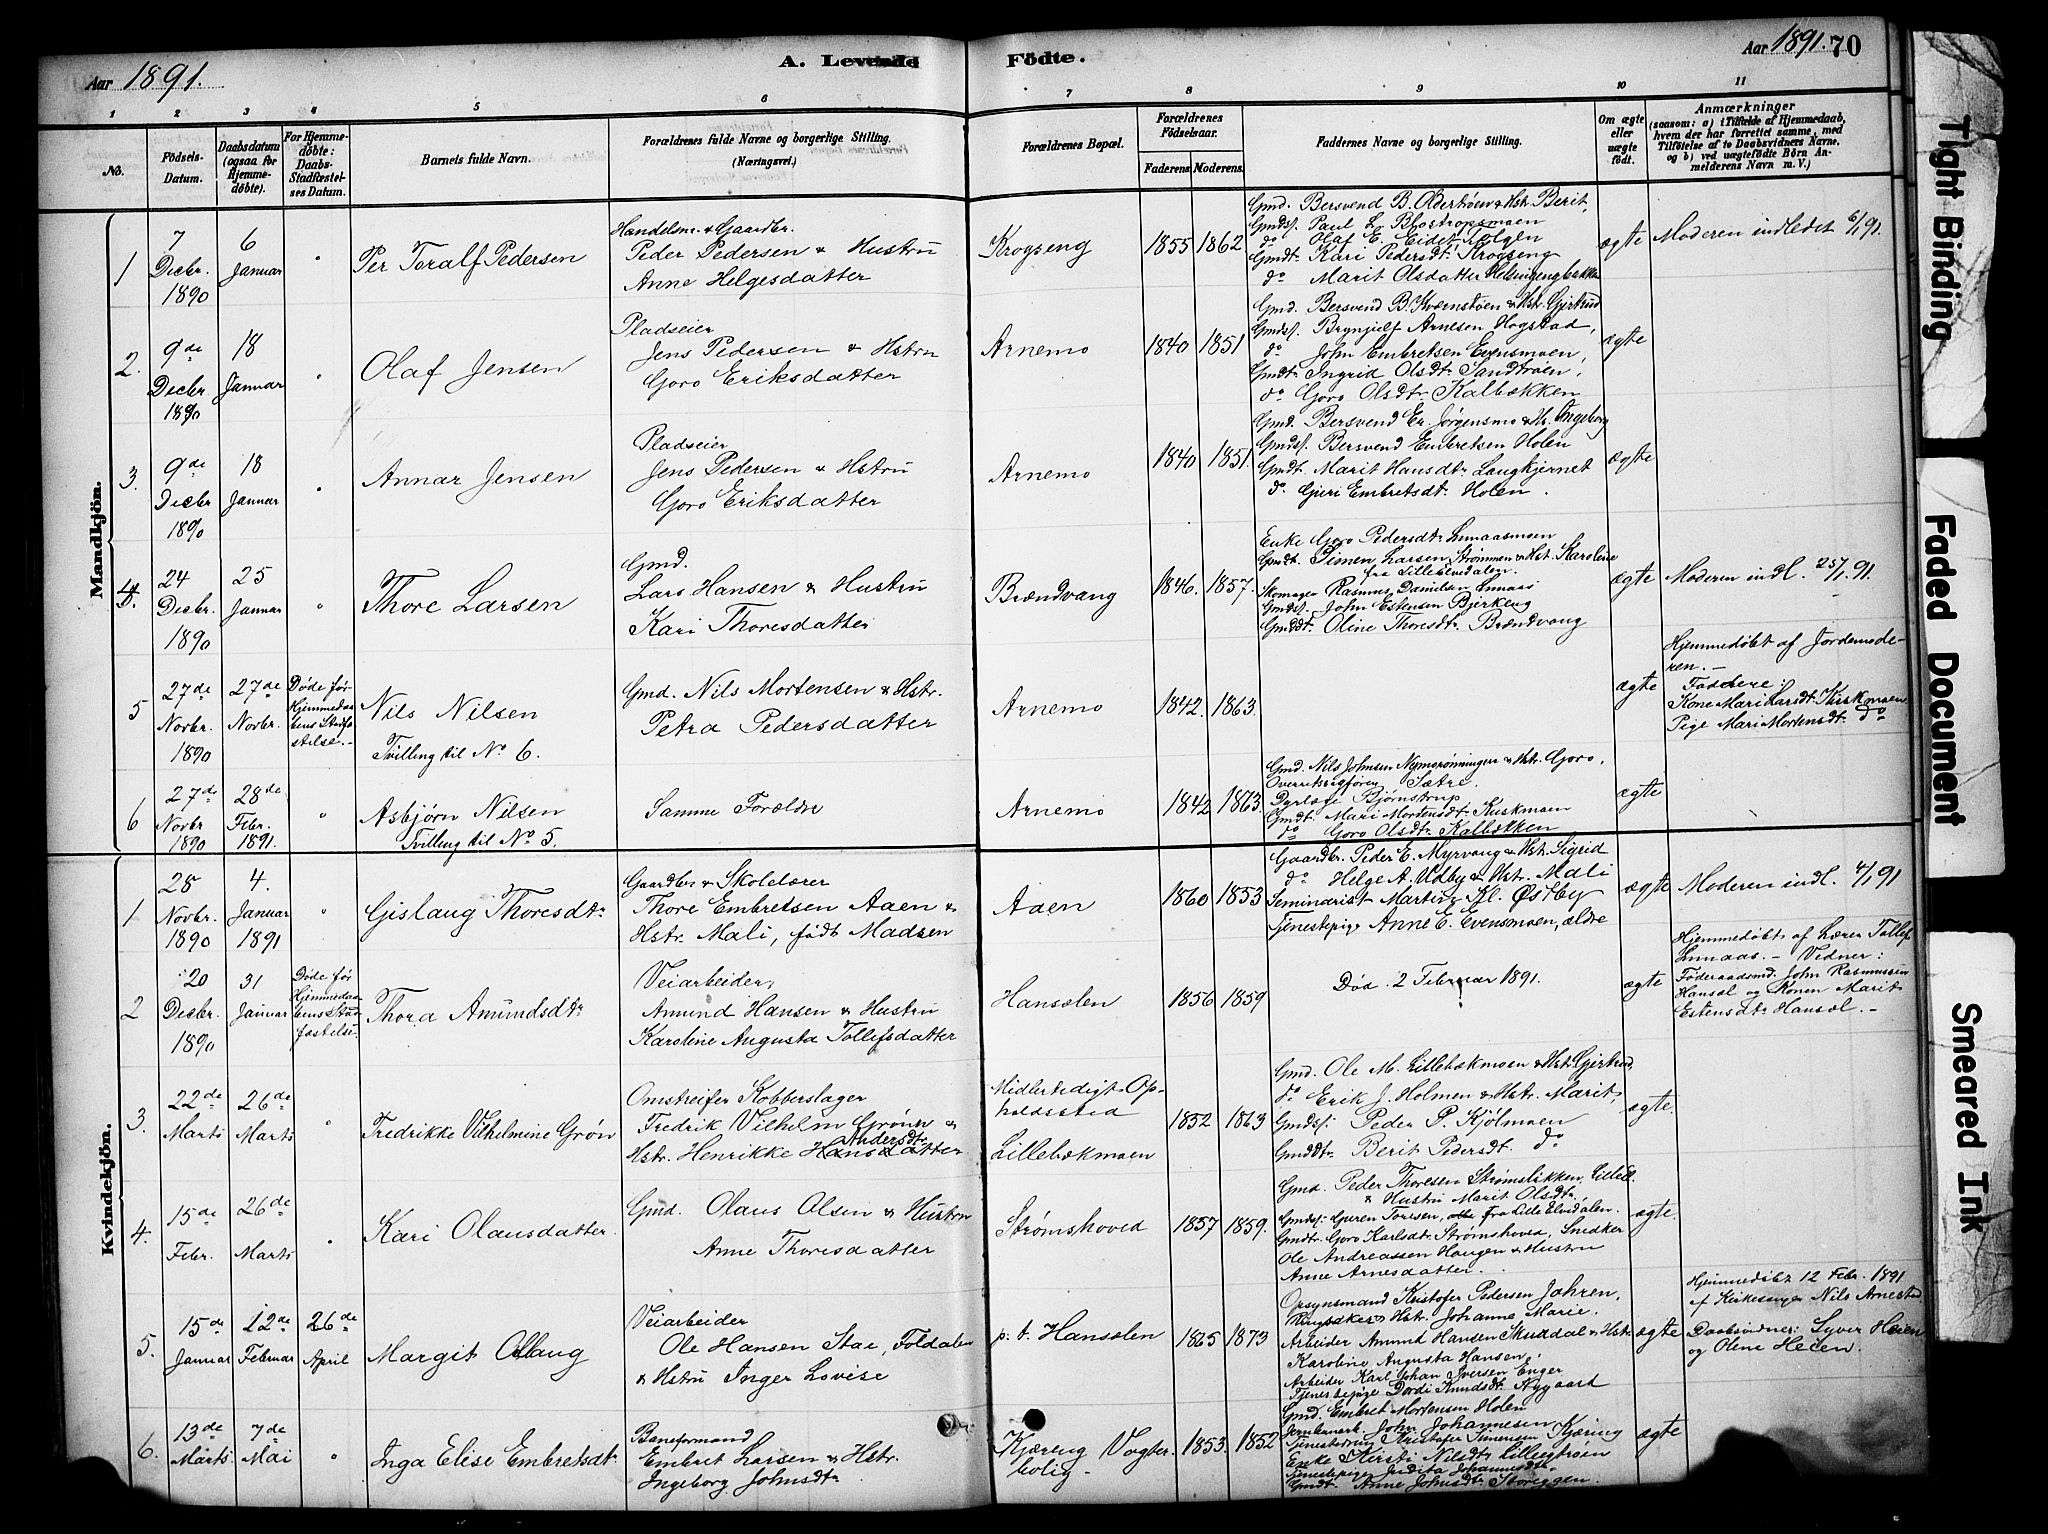 Aar 1891.
A. Levende Födte.
Aar 1891. 70
1 2 3 4 5 6 7 8 9 10 11
No.
Födsels-Datum.
Daabsdatum (ogsaa for Hjemme-döbte).
For Hjemme-döbte: Daabs-Stadfæstel-ses Datum.
Barnets fulde Navn.
Forældrenes fulde Navne og borgerlige Stilling. (Næringsvei.)
Forældrenes Bopæl.
Forældrenes Födselsaar.
Faderens. Moderens.
Faddernes Navne og borgerlige Stilling.
Om ægte eller uægte födt.
Anmærkninger
(saasom: a) i Tilfælde af Hjemmedaab, hvem der har forrettet samme, med Tilföielse af to Daabsvidners Navne, og b) ved uægtefödte Börn An-melderens Navn m. V.)
Mandkjön.
1
7 Decbr. 1890
6 Januar
"
Per Toralf Pedersen
Handelsm. & Gaardbr.
Peder Pedersen & Hustru
Anne Helgesdatter
Krogseng
1855 1862
Gmd. Bersvend B. Oldertröen & Hst. Berit,
Gmdsf. Paul L. Blostrupsmoen
do Olaf E. Eidet Tolgen
Gmdt. Kari Pedersdt. Krogseng
do Marit Olsdatter
ægte
Moderen indledet 6/1 91.
2.
9de Decbr. 1890
18 Januar
"
Olaf Jensen
Pladseier
Jens Pedersen & Hstru
Goro Eriksdatter
Arnemo
1840 1851
Gmd. Bersvend B. Kværnstöen & Hst. Gjertrud
Gmdsf. Brynjulf Arnesen Hogstad,
do John Embretsen Evensmoen,
Gmdt. Ingrid Olsdt. Sandtröen,
do Goro Olsdt. Kalbækken
ægte
3.
9de Decbr 1890
18 Januar
"
Annar Jensen
Pladseier
Jens Pedersen & Hstru
Goro Eriksdatter
Arnemo
1840 1851.
Gmd. Bersvend Er. Jörgensmo & Hr. Ingeborg
Gmdsf. Bersvend Embretsen Holen
Gmdt. Marit Hansdtr Langkjernet
do Gjeri Embretsdt. Holen.
ægte
4.
24 Decbr. 1890
25 Januar
"
Thore Larsen
Gmd.
Lars Hansen & Hustru
Kari Thoresdatter
Brændvang
1846. 1857.
Enke Goro Pedersdt. Lunaasmoen
Gmdt. Simen Larsen Strömmen & Hst. Karoline
fra Lilleelvedalen.
Skomager Rasmus Danielsen Lunaas
Gmdsf. John Estensen Bjerkeng
Gmddt. Oline Thoresdt. Brændvang
ægte
Moderen indl. 25/1 91.
5
27de Novbr. 1890
27de Novbr.
Døde før Hjemmedaa-bens Stadfæ-stelse.-
Nils Nilsen
Tvilling til No 6.
Gmd. Nils Mortensen & Hstr.
Petra Pedersdatter
Arnemo
1842. 1863.
ægte
Hjemmedøbt af Jordemode-
ren.-
Faddere:
Kone Mari Larsdt. Kuskmoen
Pige Mari Mortensdt. do
6
27de Novbr 1890
28de Febr. 1891.
"
Asbjørn Nilsen
Tvilling til No 5.
Samme Forældre
Arnemo
1842 1863.
Gmd. Nils Johnsen Nymorönningen & Hstr. Goro,
Overrettssagförer Sætre.
Dyrlæge Bjørnstrup
Gmdt. Mari Mortensdt. Kuskmoen
do Goro Olsdt. Kalbækken
ægte
Kvindekjön.
1
28 Novbr. 1890
4. Januar 1891
"
Gislaug Thoresdt.
Gaardbr & Skolelærer
Thore Embretsen Aaen &
Hstr. Mali, født Madsen
Aaen
1860 1853
Gaardbr. Peder E. Myrvang & Hst. Sigrid
do Helge A. Udby & Hst. Mali
Seminarist Martin Kl. Østby
Tjenestepige Anne E. Evensmoen, ældre
ægte
Moderen indl. 4/1 91
2
20 Decbr. 1890
31 Januar
Døde før Hjemmedaa-bens Stad-fæstelse.
Thora Amundsdt.
Veiarbeider,
Amund Hansen & Hustru
Karoline Augusta Tollefsdatter
Hansølen
1856 1859
Død 2 Februar 1891.
ægte
Hjemmedøbt af Lærer Tollef
Lunaas.- Vidner:
Föderaadsmd. John Rasmussen
Hansøl og Konen Marit
Estensdt. Hansøl.-
3.
22de Marts
26de Marts
"
Fredrikke Vilhelmine Grön
Omstreifer Kobberslager
Fredrik Vilhelm Grönn &
Hstr. Henrikke Hansdatter Andersdt.
Midlertidigt Op-
holdssted
Lillebækmoen
1852 1863
Gmd. Ole M. Lillebækmoen & Hst. Gjertrud,
do Erik J. Holmen & Hstr. Marit,
Gmdsf. Peder P. Kjølmoen
Gmddt. Berit Pedersdt. do
ægte.
4.
15de Febr.
26de Marts
"
Kari Olausdatter.
Gmd. Olaus Olsen & Hustru
Anne Thoresdatter
Strømshoved
1857 1859.
Gmd. Peder Thoresen Strømsbakken, Lilleel.
& Hustru Marit Olsdt.
Gmdsf. Guren Toresen, fra Lille Elvedalen.
Gmdtr. Goro Karlsdt. Strømshoved, Snedker
Ole Andreassen Haugen & Hustru
Anne Arnesdatter.
ægte.
5.
15de Januar
12de Februar
26de April
Margit Ollaug
Veiarbeider
Ole Hansen Stai, Foldalen
& Hstru Inger Lovise
p. t. Hansølen
1865 1873
Opsynsmand Kristofer Pedersen Johren,
Ringsaker & Hstr. Johanne Marie.
Arbeider Amund Hansen Skuddal & Hstr.
Karoline Augusta Hansen,
Arbeider Karl Johan Iversen Enger
Tjenestepige Dordi Knudsdt. Nygaard
ægte
Hjemmedøbt 12 Febr. 1891
af Kirkesanger Nils Arnestad.
Daabsvidner: Syver Heien
og Olene Heien.
6.
13de Marts.
7de Mai
"
Inga Elise Embretsdt.
Baneformand
Embret Larsen & Hstr.
Ingeborg Johnsdt.
Kjæreng Vogter-
bolig.
1853. 1852
Gmd. Embret Mortensen Holen
John Johannesen
Tjenestedreng Kristofer Simensen Kjæreng
Enke Kirsti Nilsdt. Lillegtröen
Tjenestepige Judita Johannesdt.
Gmdt. Anne Johnsdt. Storeggen.
ægte
Tight Binding
Faded Document
Smeared Ink